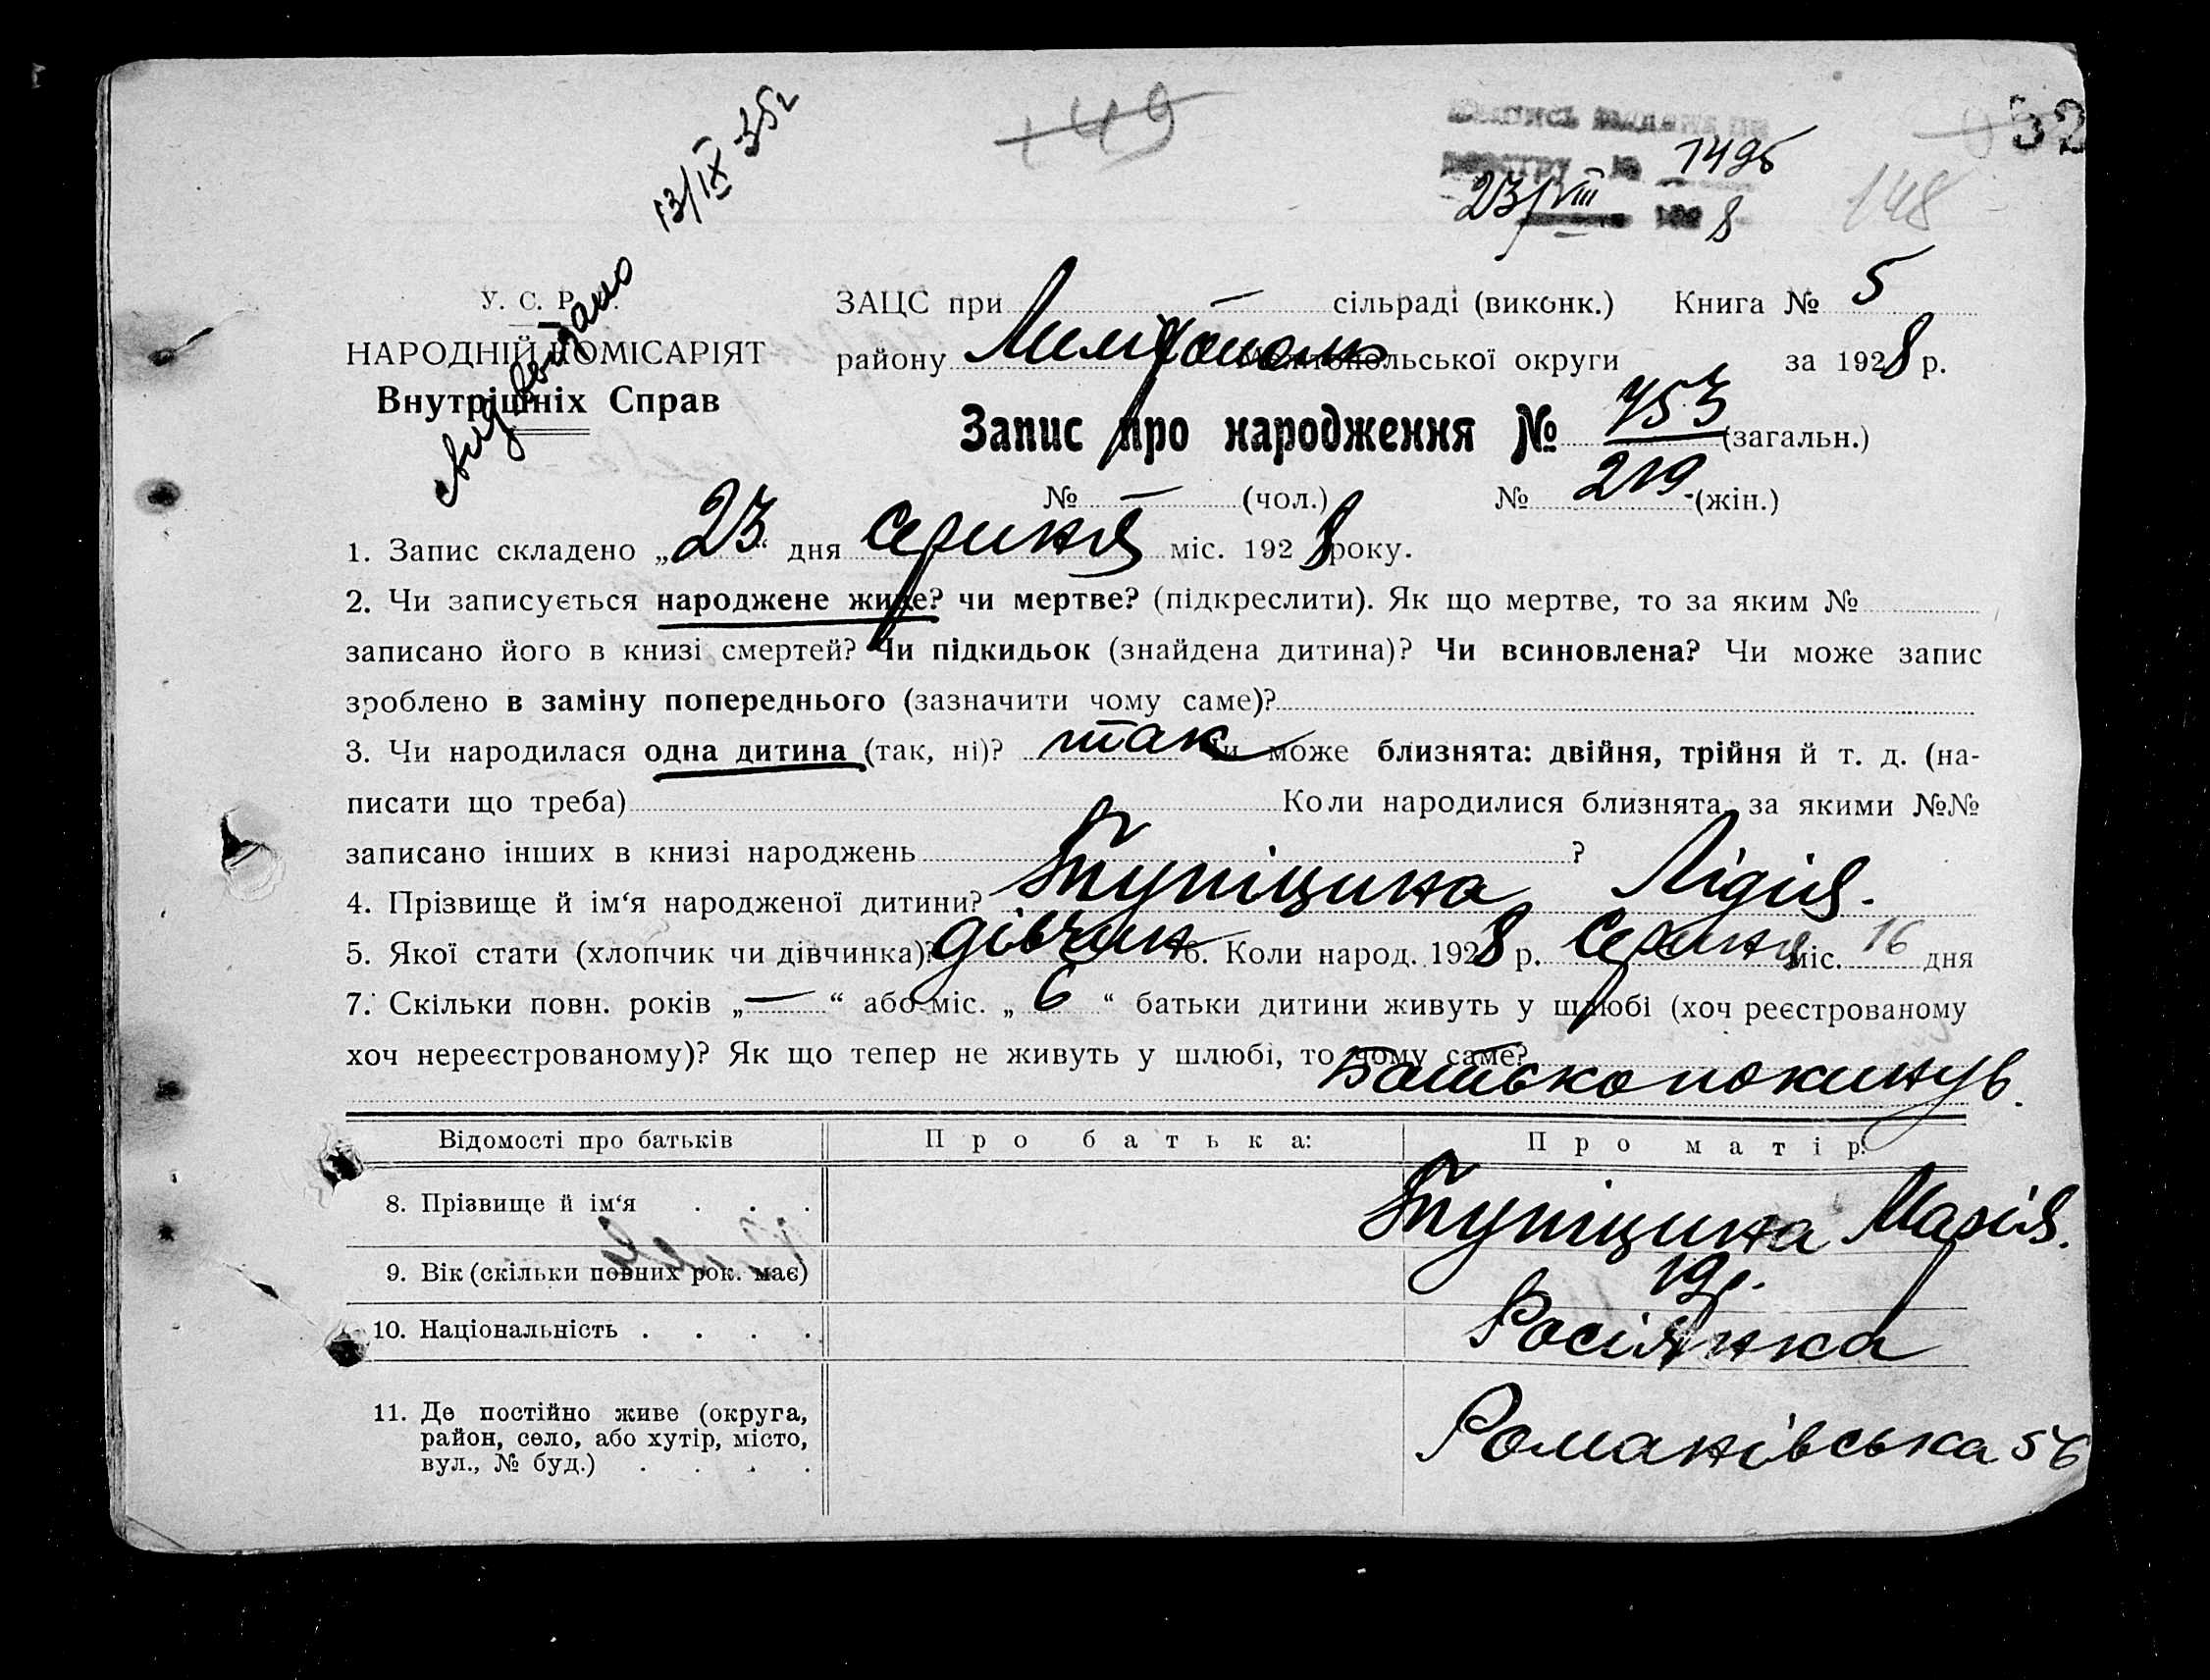 149
Выпись выдана по
реестру № 1495
23/VIII 1928
52
148
видано 13/IX-35г
У. С. Р. Р.
НАРОДНІЙ КОМІСАРІЯТ
Внутрішніх Справ
ЗАЦС при — сільраді (виконк.) Книга № 5
району Мелітополь Мелітопольської округи за 1928 р.
Запис про народження № 453 (загальн.)
№ — (чол.) № 219 (жін.)
1. Запис складено „23“ дня серпня міс. 1928 року.
2. Чи записується народжене живе? чи мертве? (підкреслити). Як що мертве, то за яким №
записано його в книзі смертей? Чи підкидьок (знайдена дитина)? Чи всиновлена? Чи може запис
зроблено в заміну попереднього (зазначити чому саме)?
3. Чи народилася одна дитина (так, ні)? так Чи може близнята: двійня, трійня й т. д. (на-
писати що треба) Коли народилися близнята, за якими №№
записано інших в книзі народжень ?
4. Прізвище й ім‘я народженої дитини? Тупіцина Лідія.
5. Якої стати (хлопчик чи дівчинка)? дівчин 6. Коли народ. 1928 р. Серпня міс. 16 дня
7. Скільки повн. років „—“ або міс. „6“ батьки дитини живуть у шлюбі (хоч реєстрованому
хоч нереєстрованому)? Як що тепер не живуть у шлюбі, то чому саме?
Батько покинув.
Відомості про батьків Про батька: Про матір:
8. Прізвище й ім‘я . . . Тупіцина Марія.
9. Вік (скільки повних рок. має) 19 р.
10. Національність . . . . Росіянка
11. Де постійно живе (округа,
район, село, або хутір, місто,
вул., № буд.) . . . . Романівська 56